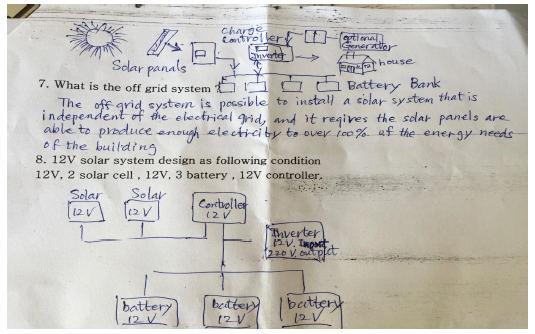 Charge
Controller
Inverter
optional
Generator
house
Solar panals
7. What is the off grid system ?
Battery Bank
The off-grid system is possible to install a solar system that is
independent of the electrical grid, and it regires the solar panels are
able to produce enough electricity to over 100% of the energy needs
of the building
8. 12V solar system design as following condition
12V, 2 solar cell , 12V, 3 battery , 12V controller.
Solar
12 V
Solar
12 V
Controller
12 V
Inverter
12 V. Input
220 V. output
battery
12 V
battery
12 V
battery
12 V